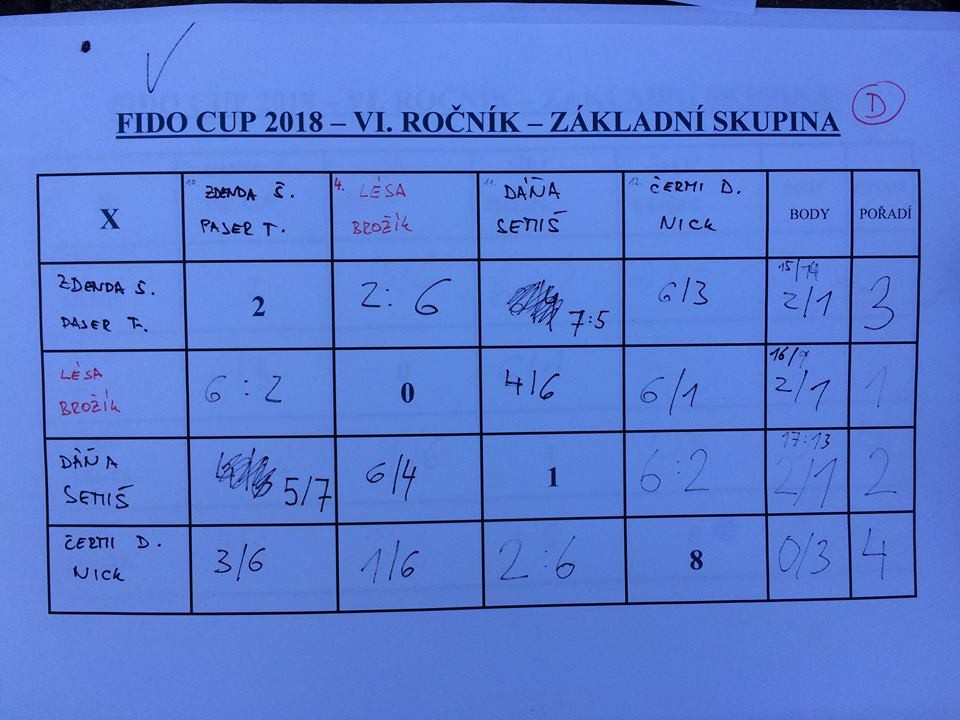 D
FIDO CUP 2018 – VI. ROČNÍK – ZÁKLADNÍ SKUPINA
X
10 ZDENDA Š.
PAJER T.
4. LÉSA
BROŽÍK
11. DÁŇA
SEMIŠ
12. ČERMI D.
NICK
BODY
POŘADÍ
ZDENDA Š.
PAJER T.
2
2:6
7:5
6/3
15/14
2/1
3
LÉSA
BROŽÍK
6:2
0
4/6
6/1
16/9
2/1
1
DÁŇA
SEMIŠ
5/7
6/4
1
6:2
17:13
2/1
2
ČERMI D.
NICK
3/6
1/6
2:6
8
0/3
4